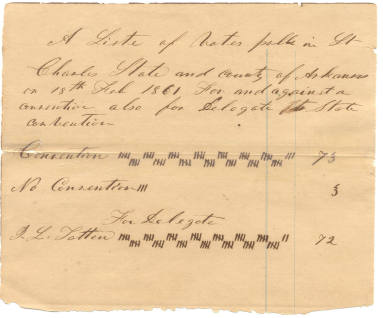 A Liste of Votes polle in St
Charles State and county of Arkansas
on 18th Feb 1861 For and against a
convention also for Delegate to State
convention
Convention 卌 卌 卌 卌 卌 卌 卌 卌 卌 卌 卌 卌 卌 卌 III 73
No Convention III 3
For Delegate
J. L. Totten 卌 卌 卌 卌 卌 卌 卌 卌 卌 卌 卌 卌 卌 卌 II 72